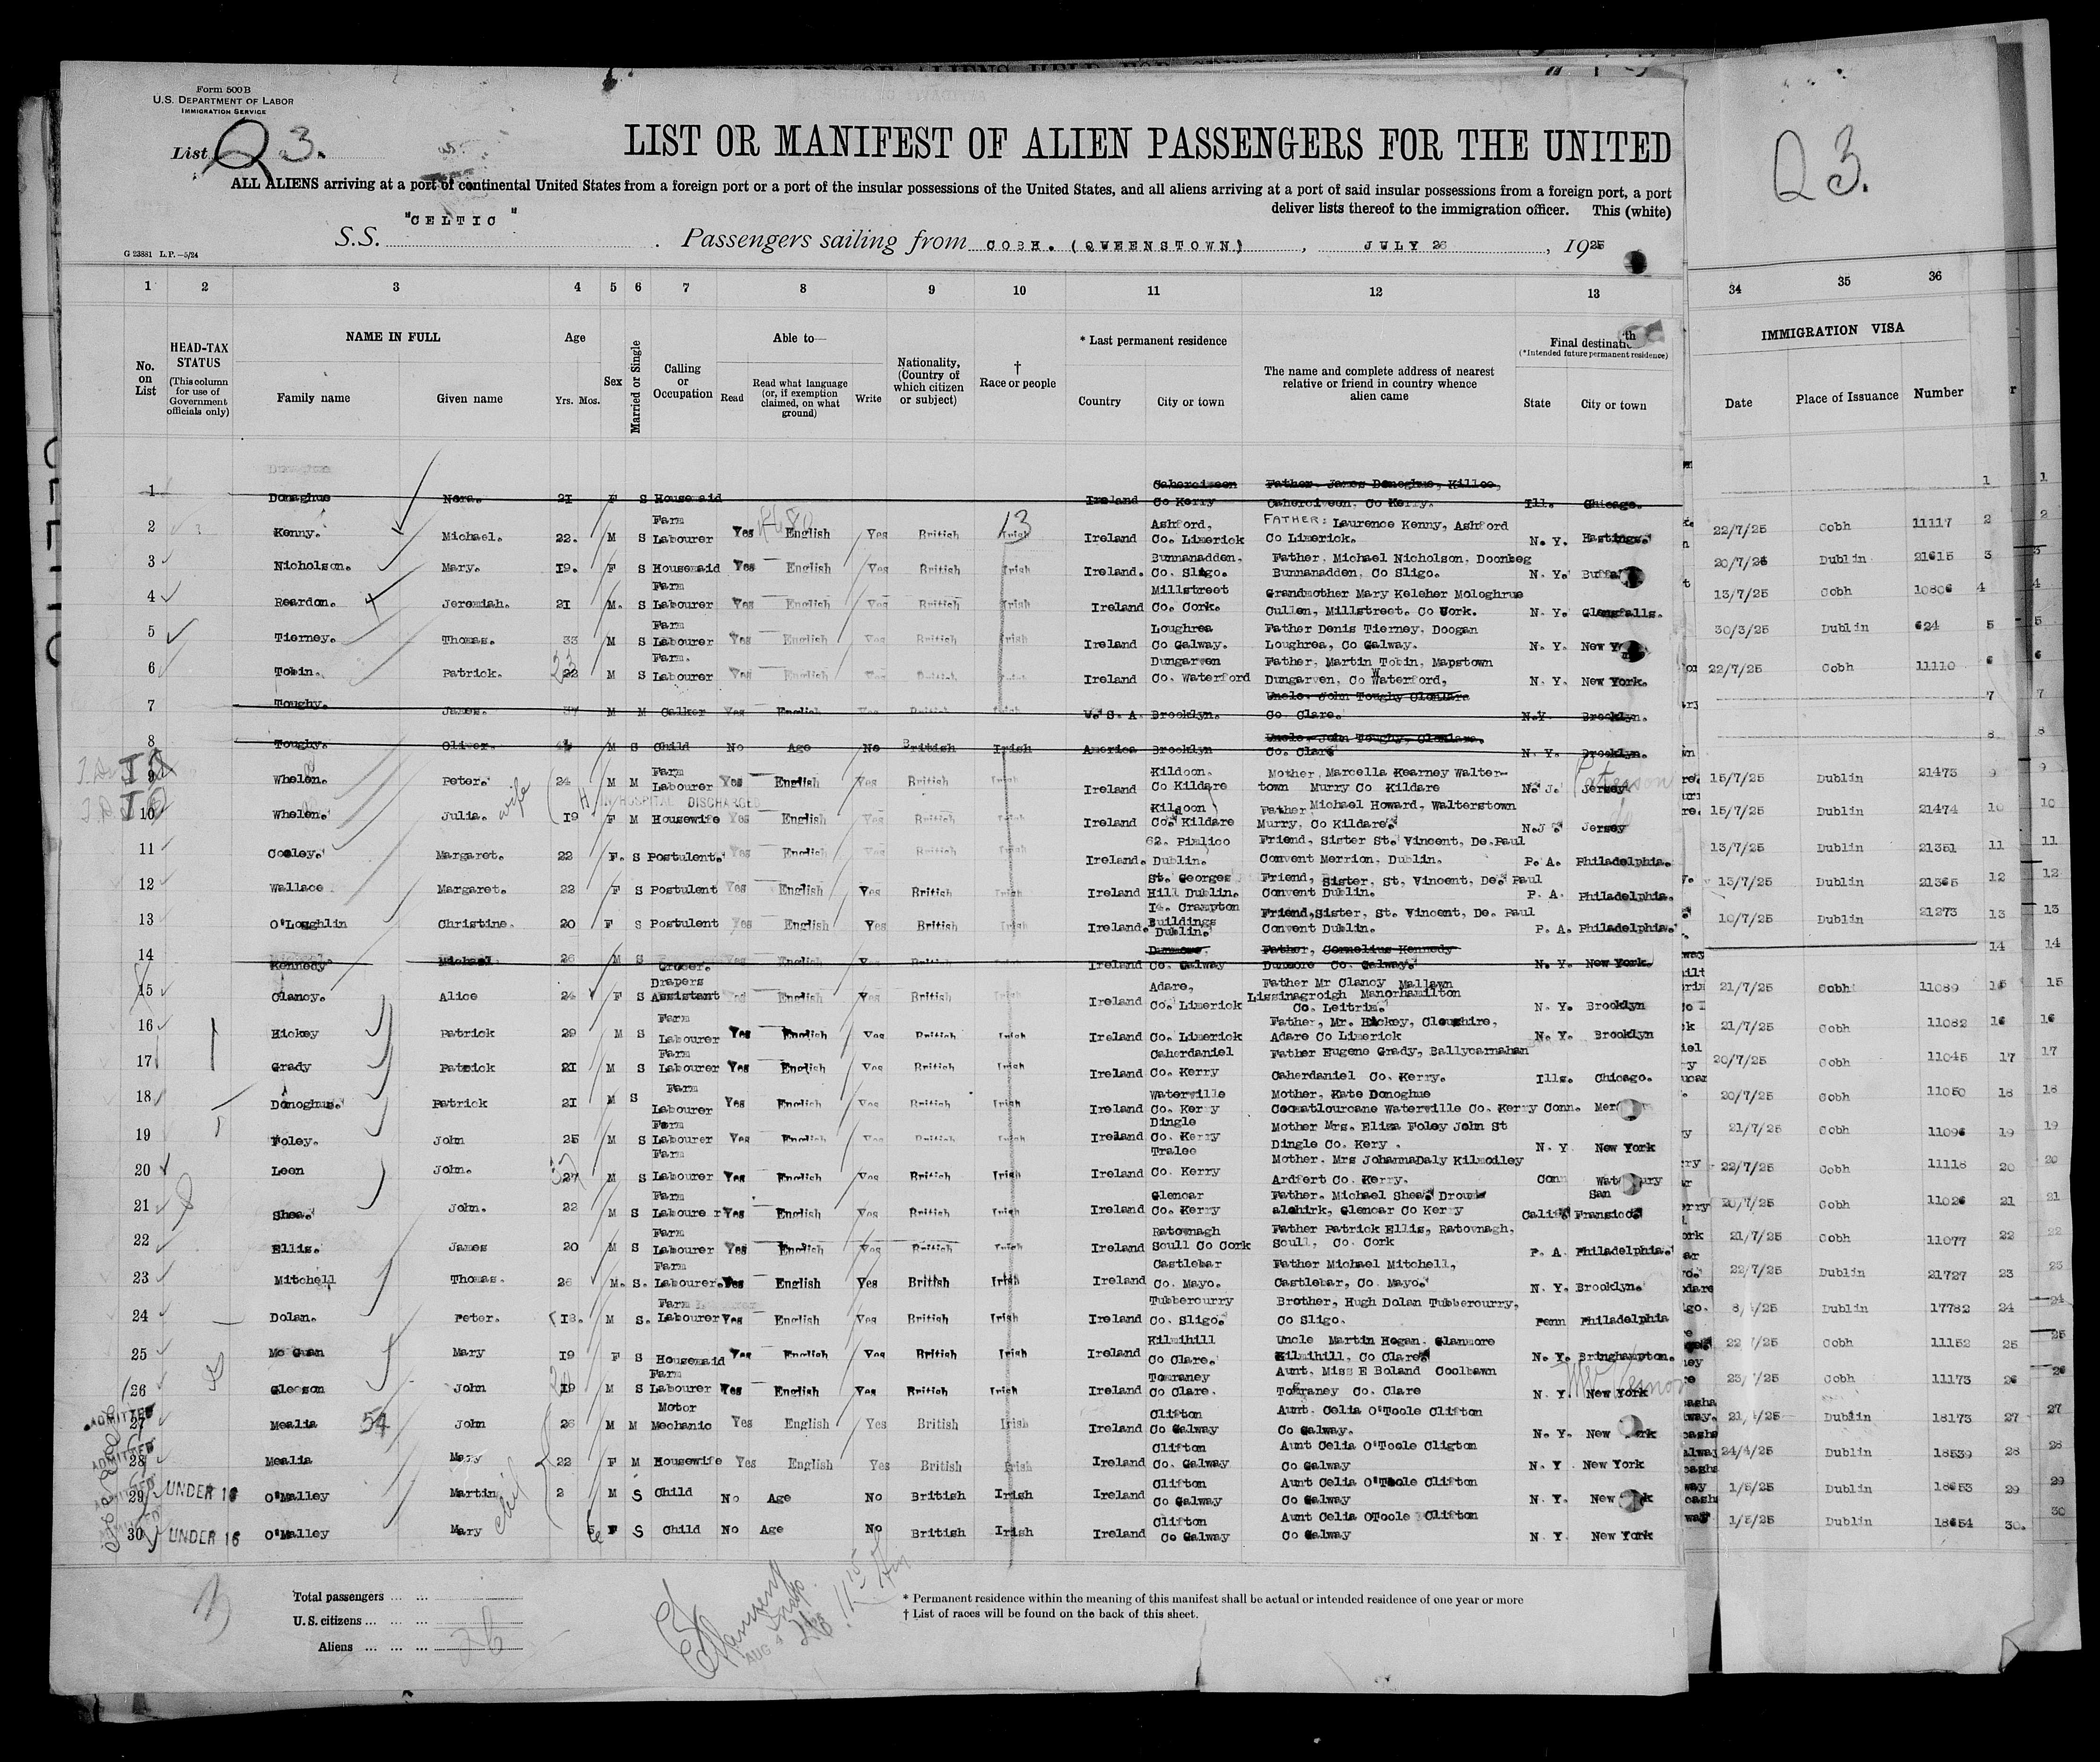 Form 500B
U.S. DEPARTMENT OF LABOR
IMMIGRATION SERVICE
List Q 3.
Q 3.
LIST OR MANIFEST OF ALIEN PASSENGERS FOR THE UNITED
ALL ALIENS arriving at a port of continental United States from a foreign port or a port of the insular possessions of the United States, and all aliens arriving at a port of said insular possessions from a foreign port, a port
deliver lists thereof to the immigration officer. This (white)
S.S. "CELTIC" . Passengers sailing from COBH. (QWEENSTOWN) , JULY 26 , 1925
G 23881 L.P.—5/24
1 2 3 4 5 6 7 8 9 10 11 12 13 34 35 36
No. on List
HEAD-TAX STATUS (This column for use of Government officials only)
NAME IN FULL
Family name Given name
Age
Yrs. Mos.
Sex
Married or Single
Calling or Occupation
Able to—
Read
Read what language (or, if exemption claimed, on what ground)
Write
Nationality, (Country of which citizen or subject)
† Race or people
* Last permanent residence
Country City or town
The name and complete address of nearest relative or friend in country whence alien came
Final destination
(*Intended future permanent residence)
State City or town
IMMIGRATION VISA
Date Place of Issuance Number
1 Donaghue Nora. 21 F S Housemaid Ireland Caherciveen Co Kerry Father. James Donoghue, Killoe, Caherciveen, Co Kerry. Ill. Chicago. 1
2 Kenny. Michael. 22. M S Farm Labourer Yes English Yes British Irish Ireland Ashford, Co. Limerick FATHER: Laurence Kenny, Ashford Co Limerick. N. Y. Hastings. 22/7/25 Cobh 11117 2
3 Nicholson. Mary. 19. F S Housemaid Yes English Yes British Irish Ireland. Bunnanadden. Co. Sligo. Father. Michael Nicholson, Doonbeg Bunnanadden, Co Sligo. N. Y. 20/7/25 Dublin 21615 3
4 Reardon. Jeremiah. 21 M. S Farm Labourer Yes English Yes British Irish Ireland Millstreet Co. Cork. Grandmother Mary Keleher Mologhrue Cullen, Millstreet. Co Cork. N. Y. Glensfalls. 13/7/25 Cobh 10806 4
5 Tierney. Thomas. 33 M S Farm Labourer Yes English Yes British Irish Ireland Loughrea Co Galway. Father Denis Tierney. Doogan Loughrea, Co Galway. N. Y. New 30/3/25 Dublin 624 5
6 Tobin. Patrick. 22 M S Farm. Labourer Yes English Yes British Irish Ireland Dungarven Co. Waterford Father, Martin Tobin, Mapstown Dungarven, Co Waterford, N. Y. New York. 22/7/25 Cobh 11110 6
7 Toughy. James. 37 M M Calker Yes English Yes British Irish U. S. A. Brooklyn. Uncle. John Toughy Co. Clare. N.Y. Brooklyn. 7
8 Toughy. Oliver. M S Child No Age No British Irish America Brooklyn Uncle. John Toughy, Co. Clare N. Y. Brooklyn. 8
9 Whelen. Peter. 24 M M Farm Labourer Yes English Yes British Irish Ireland Kildoon. Co Kildare Mother, Marcella Kearney Walter-town Murry Co Kildare N. J. Jersey Paterson 15/7/25 Dublin 21473 9
IN HOSPITAL DISCHARGED
10 Whelen. Julia. wife 19 F M Housewife Yes English Yes British Irish Ireland Kildoon Co. Kildare Father Michael Howard, Walterstown Murry, Co Kildare. N.J. Jersey 15/7/25 Dublin 21474 10
11 Cooley. Margaret. 22 F. S Postulent. Yes English Yes British Irish Ireland. 62. Pimlico Dublin. Friend, Sister St. Vincent, De.Paul Convent Merrion, Dublin. P. A. Philadelphia. 13/7/25 Dublin 21351 11
12 Wallace Margaret. 22 F S Postulent Yes English Yes British Irish Ireland St. Georges Hill Dublin. Friend, Sister, St, Vincent, De. Paul Convent Dublin. P. A. Philadelphia. 13/7/25 Dublin 21365 12
13 O'Loughlin Christine. 20 F S Postulent Yes English Yes British Irish Ireland. 14. Crampton Buildings Dublin. Friend, Sister, St. Vincent, De. Paul Convent Dublin. P. A. Philadelphia. 10/7/25 Dublin 21273 13
14 Kennedy Michael 26 M S Grocer. Yes English Yes British Irish Ireland Dunmore. Co. Galway Father, Cornelius Kennedy Dunmore Co. Galway. N. Y. New York. 14
15 Clancy. Alice 24 F S Drapers Assistant English Yes British Irish Ireland Adare, Co. Limerick Father Mr Clancy Mallawn Lissinagroigh Manorhamilton Co. Leitrim. N. Y. Brooklyn 21/7/25 Cobh 11089 15
16 Hickey Patrick 29 M S Farm Labourer Yes English Yes British Irish Ireland Co. Limerick Father, Mr. Hickey, Cloughire, Adare Co Limerick N. Y. Brooklyn 21/7/25 Cobh 11082 16
17 Grady Patrick 21 M S Farm Labourer Yes English Yes British Irish Ireland Caherdaniel Co. Kerry Father Eugene Grady, Ballycarnahan Caherdaniel Co. Kerry. Ills. Chicago. 20/7/25 Cobh 11045 17
18 Donoghue. Patrick 21 M S Farm Labourer Yes English Yes British Irish Ireland Waterville Co. Kerry Mother, Kate Donoghue Coomatlourcane Waterville Co. Kerry Conn. 20/7/25 Cobh 11050 18
19 Foley. John 25 M S Farm Labourer Yes English Yes British Irish Ireland Dingle Co. Kerry Mother Mrs. Eliza Foley John St Dingle Co. Kery . N. Y New York 21/7/25 Cobh 11096 19
20 Leen John. 27 M S Farm Labourer Yes English Yes British Irish Ireland Tralee Co. Kerry Mother. Mrs JohannaDaly Kilmoiley Ardfert Co. Kerry. Conn 22/7/25 Cobh 11118 20
21 Shea. John. 22 M S Farm Laboure r Yes English Yes British Irish Ireland Glencar Co. Kerry Father. Michael Shea. alohirk, Glencar Co Kerry Calif San Fransico. 20/7/25 Cobh 11026 21
22 Ellis. James 20 M S Farm Labourer Yes English Yes British Irish Ireland Ratownagh Scull Co Cork Father Patrick Ellis, Ratovnagh, Scull, Co. Cork P. A. Philadelphia. 21/7/25 Cobh 11077 22
23 Mitchell Thomas. 26 M. S. Farm Labourer. Yes English Yes British Irish Ireland Castlebar Co. Mayo. Father Michael Mitchell, Castlebar, Co. Mayo. N. Y. Brooklyn. 22/7/25 Dublin 21727 23
24 Dolan. Peter. 18. M S. Farm Labourer Yes English Yes British Irish Ireland Tubbercurry Co. Sligo. Brother, Hugh Dolan Tubbercurry, Co Sligo. Penn Philadelphia Dublin 17782 24
25 Mary 19 F S Housemaid Yes English Yes British Irish Ireland Kilmihill Co Clare. Uncle Martin Hogan. Glanmore Kilmihill, Co Clare. N. Y. Bringhampton. Cobh 11152 25
26 Gleeson John 19 M S Farm Labourer Yes English Yes British Irish Ireland Tomraney Co Clare. Aunt, Miss E Boland Coolbawn Tomraney Co. Clare N. Y. New York Cobh 11173 26
ADMITTED 27 Mealia 54 John 26 M M Motor Mechanic Yes English Yes British Irish Ireland Clifton Co Galway Aunt. Celia O'Toole Clifton Co Galway. N. Y. New Dublin 18173 27
ADMITTED 28 Mealia Mary 22 F M Housewife Yes English Yes British Irish Ireland Clifton Co. Galway Aunt Celia O'Toole Cligton Co Galway N. Y New York 24/4/25 Dublin 18539 28
29 UNDER 16 O'Malley Martin 2 M S Child No Age No British Irish Ireland Clifton Co Galway Aunt Celia O'Toole Clifton Co Galway N. Y. New 1/5/25 Dublin 18653 29
30 UNDER 16 O'Malley Mary F S Child No Age No British Irish Ireland Clifton Co Galway Aunt Celia OToole Clifton Co Galway N. Y. New York 1/5/25 Dublin 18654 30.
Total passengers
U.S. citizens
Aliens 26
* Permanent residence within the meaning of this manifest shall be actual or intended residence of one year or more
† List of races will be found on the back of this sheet.